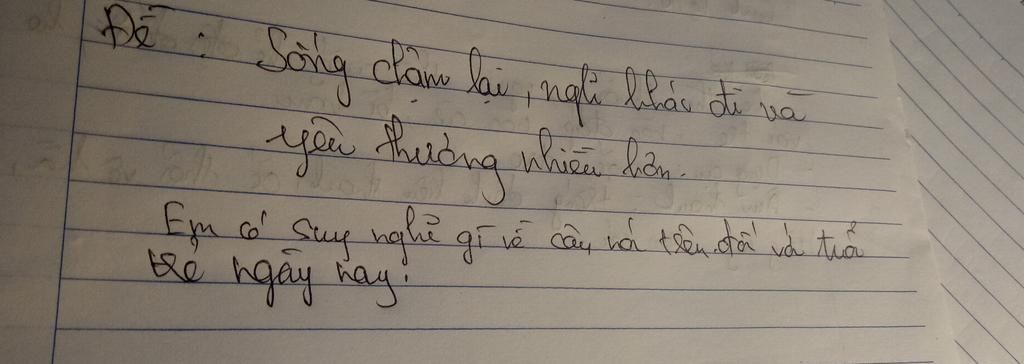 Đề : Sống chậm lại, nghĩ khác đi và
yêu thương nhiều hơn.
Em có suy nghĩ gì về câu nói trên đối với tuổi
trẻ ngày nay.